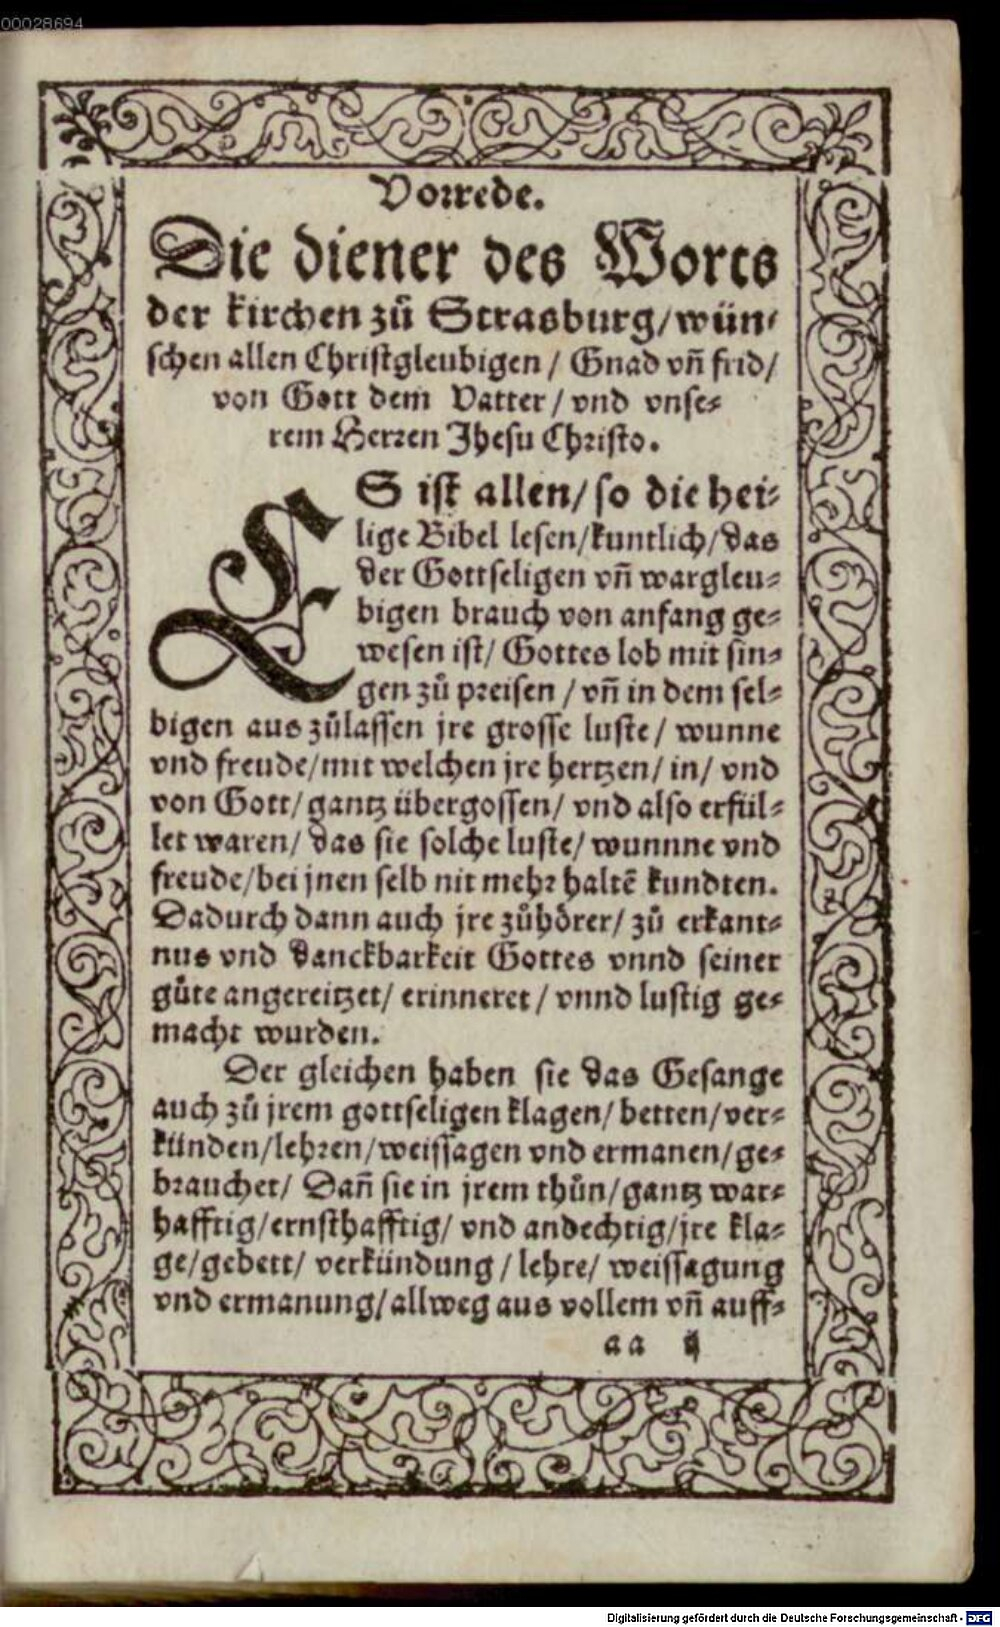 00028694
Vorrede.
Die diener des Worts
der kirchen zů Strasburg/wün⸗
schen allen Christgleubigen / Gnad vñ frid/
von Gott dem Vatter / vnd vnse⸗
rem Herren Jhesu Christo.
ES ist allen/ so die hei⸗
lige Bibel lesen/kuntlich/das
der Gottseligen vñ wargleu⸗
bigen brauch von anfang ge⸗
wesen ist/ Gottes lob mit sin⸗
gen zů preisen / vñ in dem sel⸗
bigen aus zůlassen jre grosse luste/ wunne
vnd freude/mit welchen jre hertzen/ in/ vnd
von Gott/ gantz übergossen/ vnd also erfül⸗
let waren/ das sie solche luste/ wunnne vnd
freude/bei jnen selb nit mehr haltē kundten.
Dadurch dann auch jre zůhörer/ zů erkant⸗
nus vnd danckbarkeit Gottes vnnd seiner
gůte angereitzet/ erinneret / vnnd lustig ge⸗
macht wurden.
Der gleichen haben sie das Gesange
auch zů jrem gottseligen klagen/ betten/ver⸗
künden/lehren/weissagen vnd ermanen/ge⸗
brauchet/ Dañ sie in jrem thůn/gantz war⸗
hafftig/ernsthafftig/ vnd andechtig/jre kla⸗
ge/gebett/ verkündung / lehre/ weissagung
vnd ermanung/allweg aus vollem vñ auff⸗
aa ij
Digitalisierung gefördert durch die Deutsche Forschungsgemeinschaft - DFG